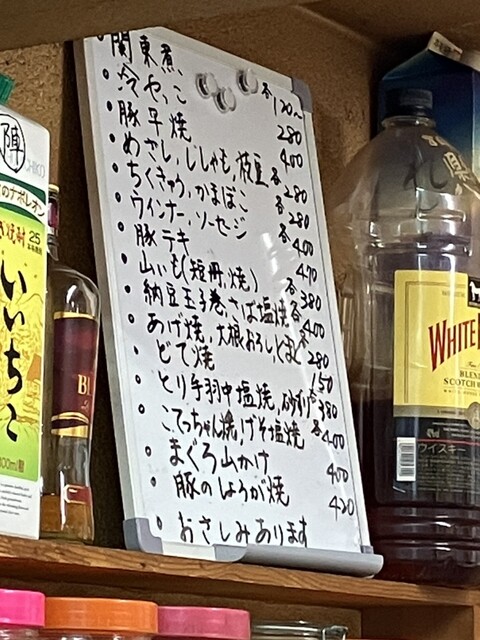 ・関東煮、各120~
・冷やっこ 280
・豚平焼 400
・めざし、ししゃも、枝豆 各280
・ちくきゅう、かまぼこ 各280
・ウインナー、ソーセージ 各400
・豚テキ 470
・山いも(短冊、焼) 各380
・納豆玉子巻、さば塩焼 各400
・あげ焼、大根おろし、とまと 280
・どて焼 150
・とり手羽中塩焼、砂ずり 各380
・こてっちゃん焼、げそ塩焼 各400
・まぐろ山かけ 400
・豚のしょうが焼 420
・おさしみあります
陣
CHIKO
のナポレオン
焼酎 25
いいちこ
WHITE
BLEN
SCOTCH
ウイスキー